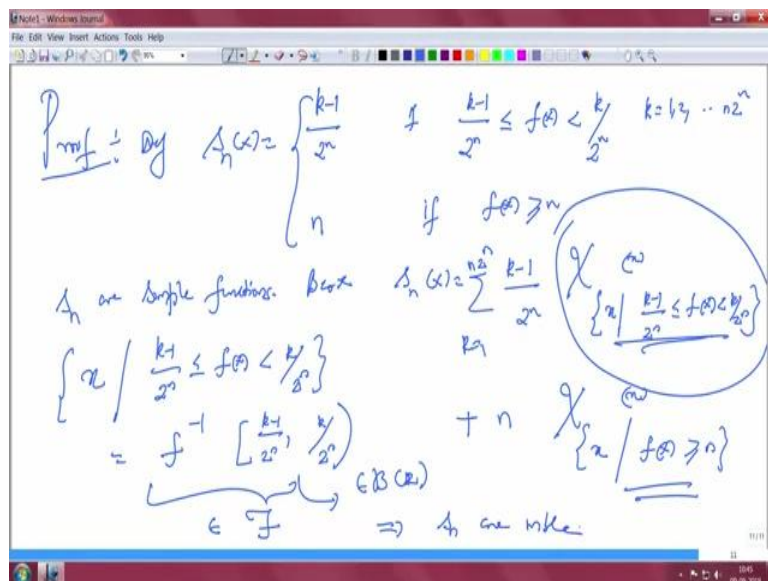 Note1 - Windows Journal
File Edit View Insert Actions Tools Help
Proof : Def s_n(x) = { (k-1)/2^n if (k-1)/2^n ≤ f(x) < k/2^n k=1,2, .. n2^n
n if f(x) ≥ n
s_n are simple functions. Because s_n(x) = Σ_{k=1}^{n2^n} (k-1)/2^n χ_{{x | (k-1)/2^n ≤ f(x) < k/2^n}} (x)
{x | (k-1)/2^n ≤ f(x) < k/2^n}
+ n χ_{{x | f(x) ≥ n}} (x)
= f^{-1} [(k-1)/2^n, k/2^n)
∈ B(R)
∈ F ⇒ s_n are mble.
11/11
11
10:45